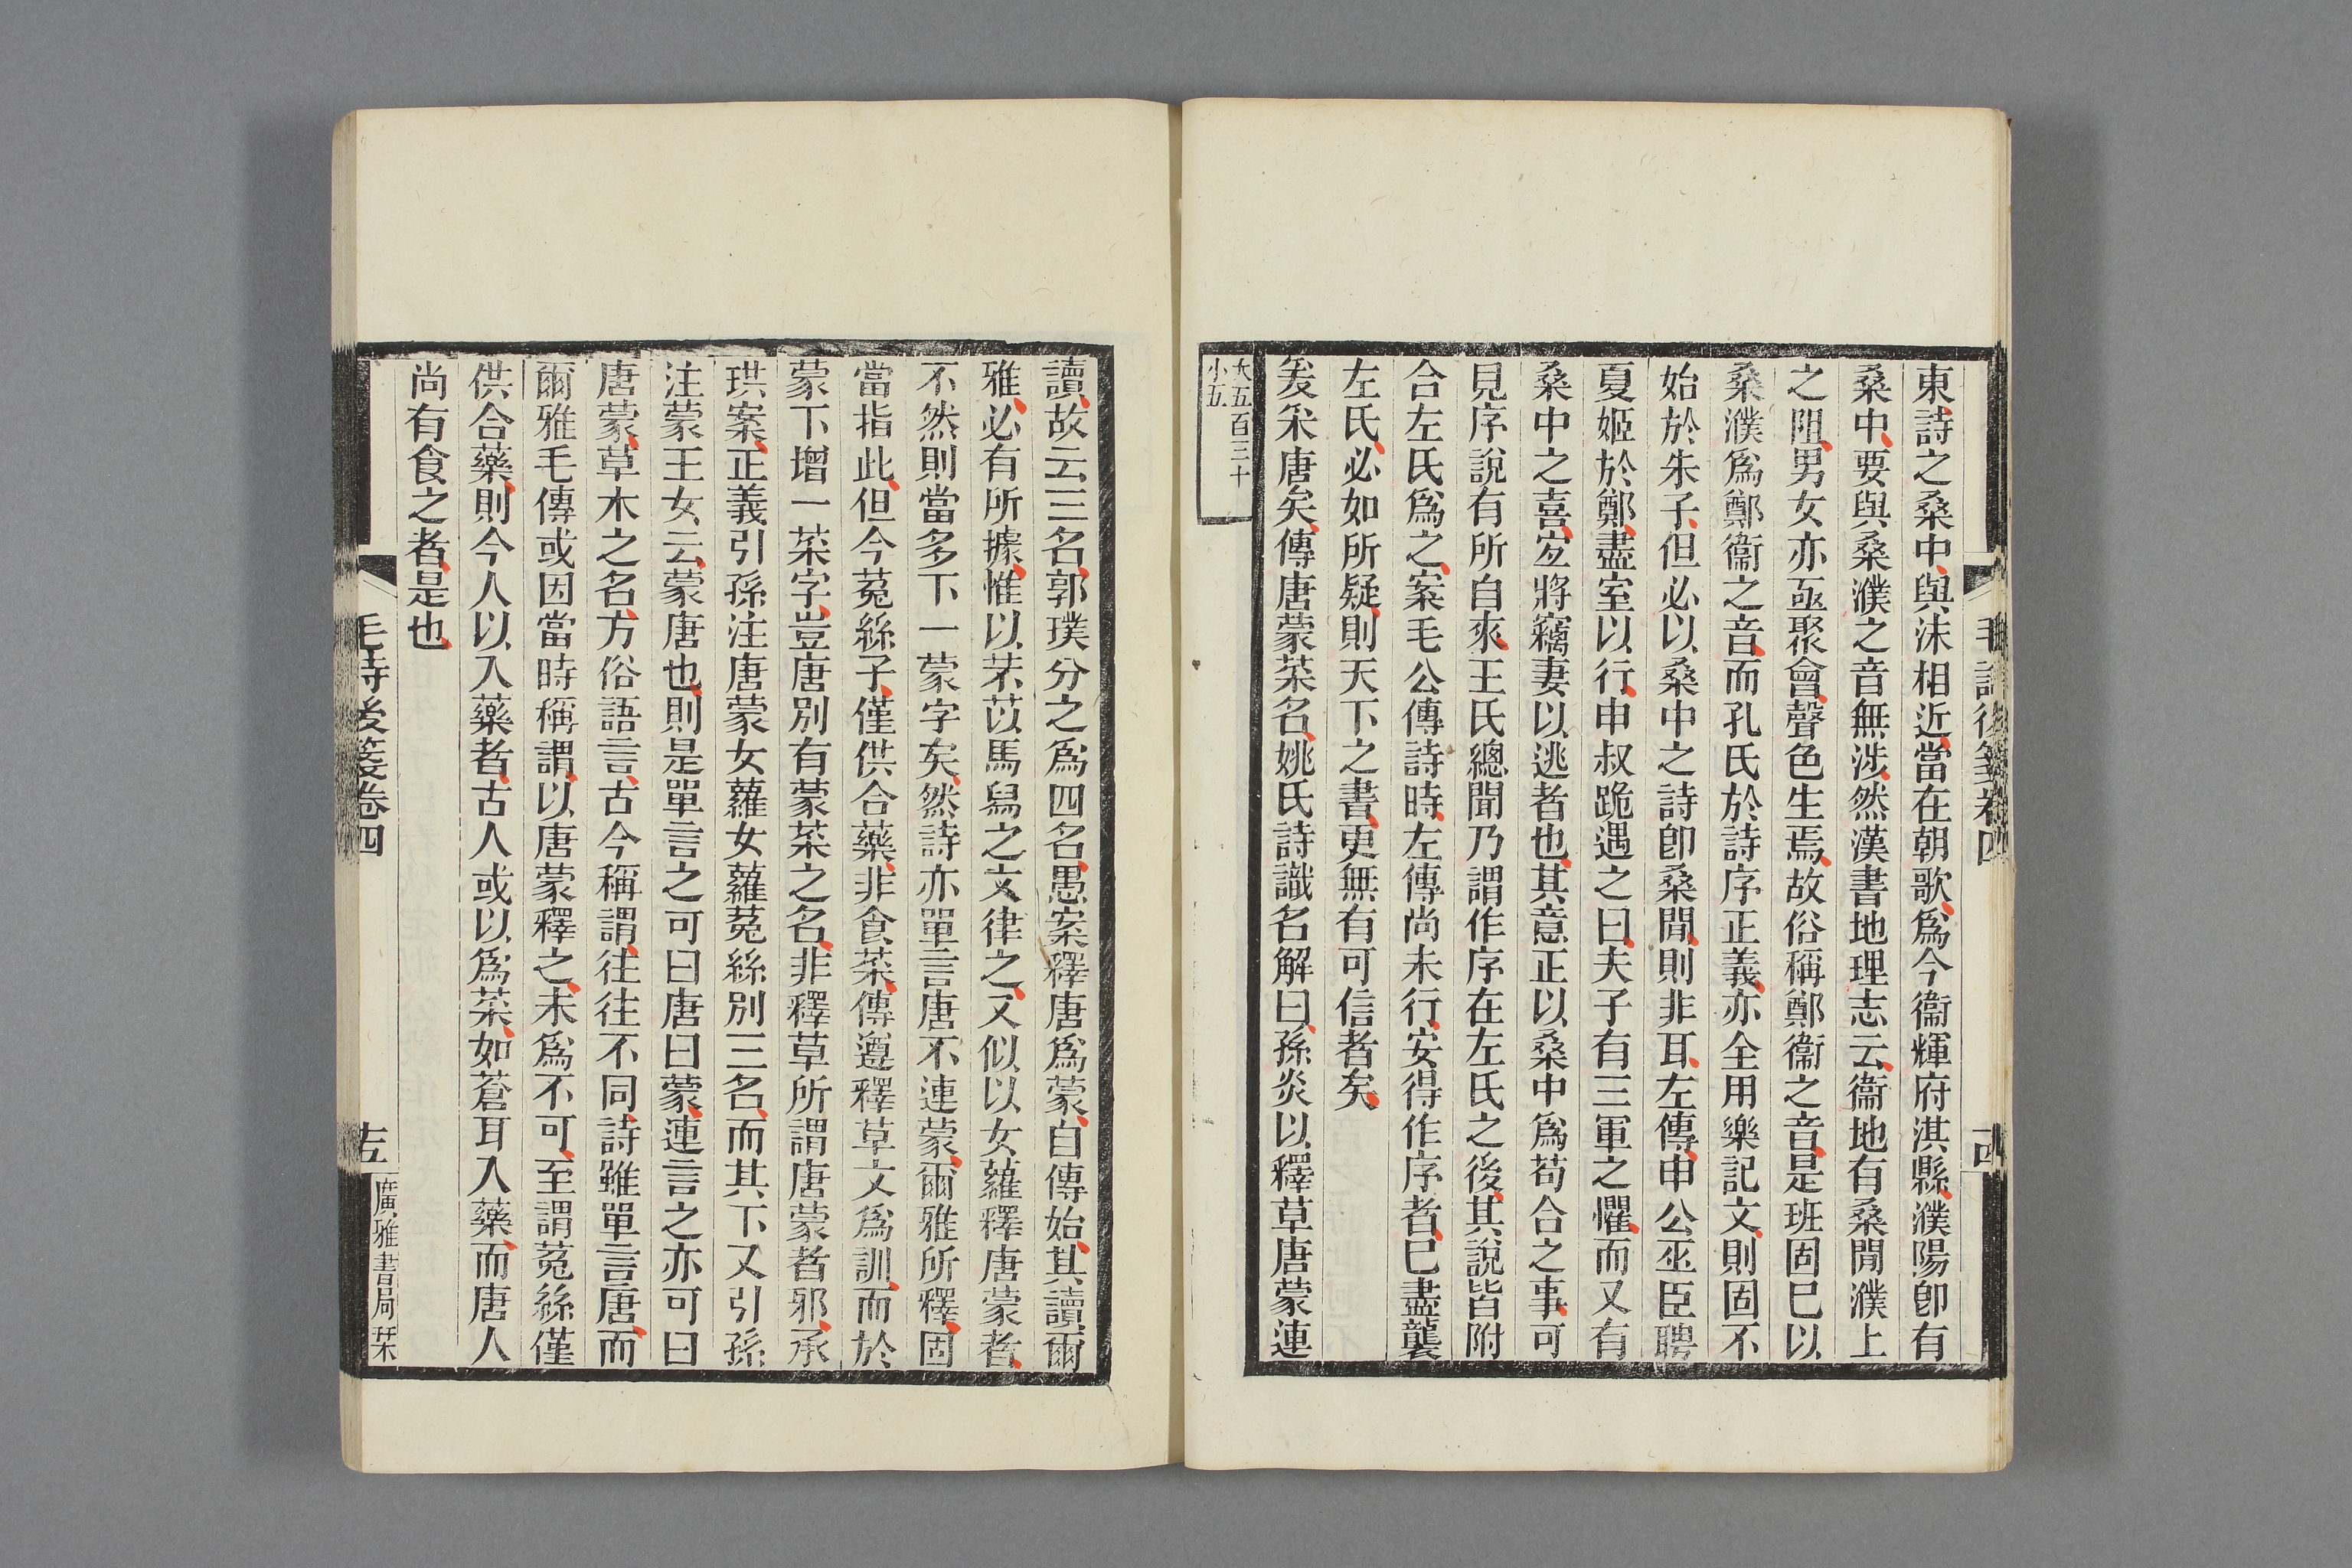 毛詩後箋卷四
十四
東詩之桑中與沬相近當在朝歌爲今衞輝府淇縣濮陽卽有
桑中要與桑濮之音無涉然漢書地理志云衞地有桑閒濮上
之阻男女亦亟聚會聲色生焉故俗稱鄭衞之音是班固已以
桑濮爲鄭衞之音而孔氏於詩序正義亦全用樂記文則固不
始於朱子但必以桑中之詩卽桑閒則非耳左傳申公巫臣聘
夏姬於鄭盡室以行申叔跪遇之曰夫子有三軍之懼而又有
桑中之喜宜將竊妻以逃者也其意正以桑中爲苟合之事可
見序說有所自來王氏總聞乃謂作序在左氏之後其說皆附
合左氏爲之案毛公傳詩時左傳尚未行安得作序者已盡襲
左氏必如所疑則天下之書更無有可信者矣
爰采唐矣傳唐蒙菜名姚氏詩識名解曰孫炎以釋草唐蒙連
大五百三十
小五
讀故云三名郭璞分之爲四名愚案釋唐爲蒙自傳始其讀爾
雅必有所據惟以芣苡馬舄之文律之又似以女蘿釋唐蒙者
不然則當多下一蒙字矣然詩亦單言唐不連蒙爾雅所釋固
當指此但今菟絲子僅供合藥非食菜傳遵釋草文爲訓而於
蒙下增一菜字豈唐別有蒙菜之名非釋草所謂唐蒙者邪承
珙案正義引孫注唐蒙女蘿女蘿菟絲別三名而其下又引孫
注蒙王女云蒙唐也則是單言之可曰唐曰蒙連言之亦可曰
唐蒙草木之名方俗語言古今稱謂往往不同詩雖單言唐而
爾雅毛傳或因當時稱謂以唐蒙釋之未爲不可至謂菟絲僅
供合藥則今人以入藥者古人或以爲菜如蒼耳入藥而唐人
尚有食之者是也
毛詩後箋卷四
十五
廣雅書局栞